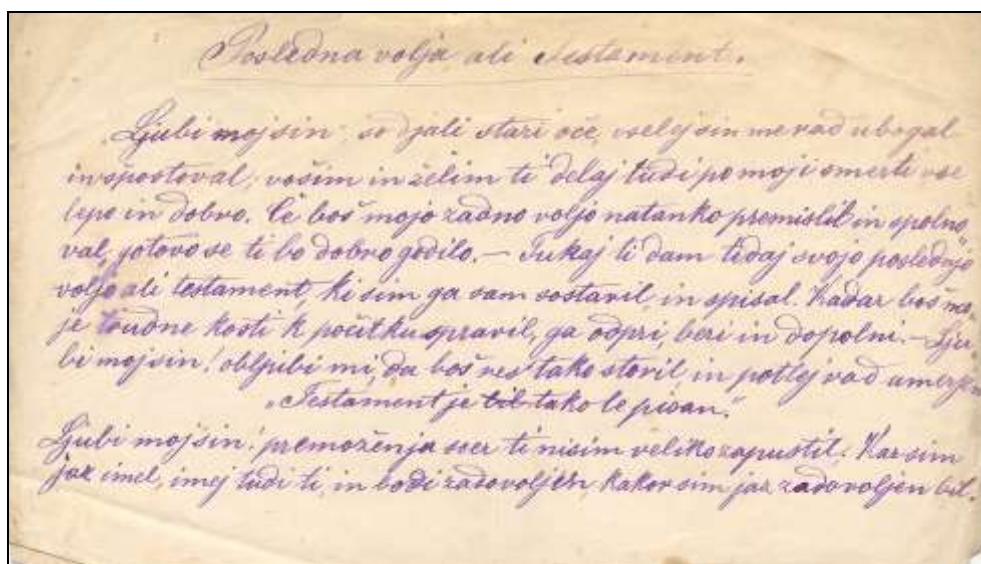 Posledna volja ali Testament.
Ljubi moj sin, so djali stari oče, vselej si me rad ubogal
in spostoval; vošim in želim ti delaj tudi po moji smerti vse
lepo in dobro. Če boš mojo zadno voljo natanko premislil in spolno-
val, gotovo se ti bo dobro godilo. — Tukaj ti dam tedaj svojo poslednjo
voljo ali testament, ki sim ga sam sostavil in spisal. Kadar boš mo-
je trudne kosti k počitku spravil, ga odpri, beri in dopolni. — Lju-
bi moj sin! obljubi mi, da boš res tako storil, in potlej rad umerjem
„Testament je bil tako le pisan."
Ljubi moj sin! premoženja sver ti nisim veliko zapustil. Kar sim
jaz imel, imej tudi ti, in bodi zadovoljen, kakor sim jaz zadovoljen bil.